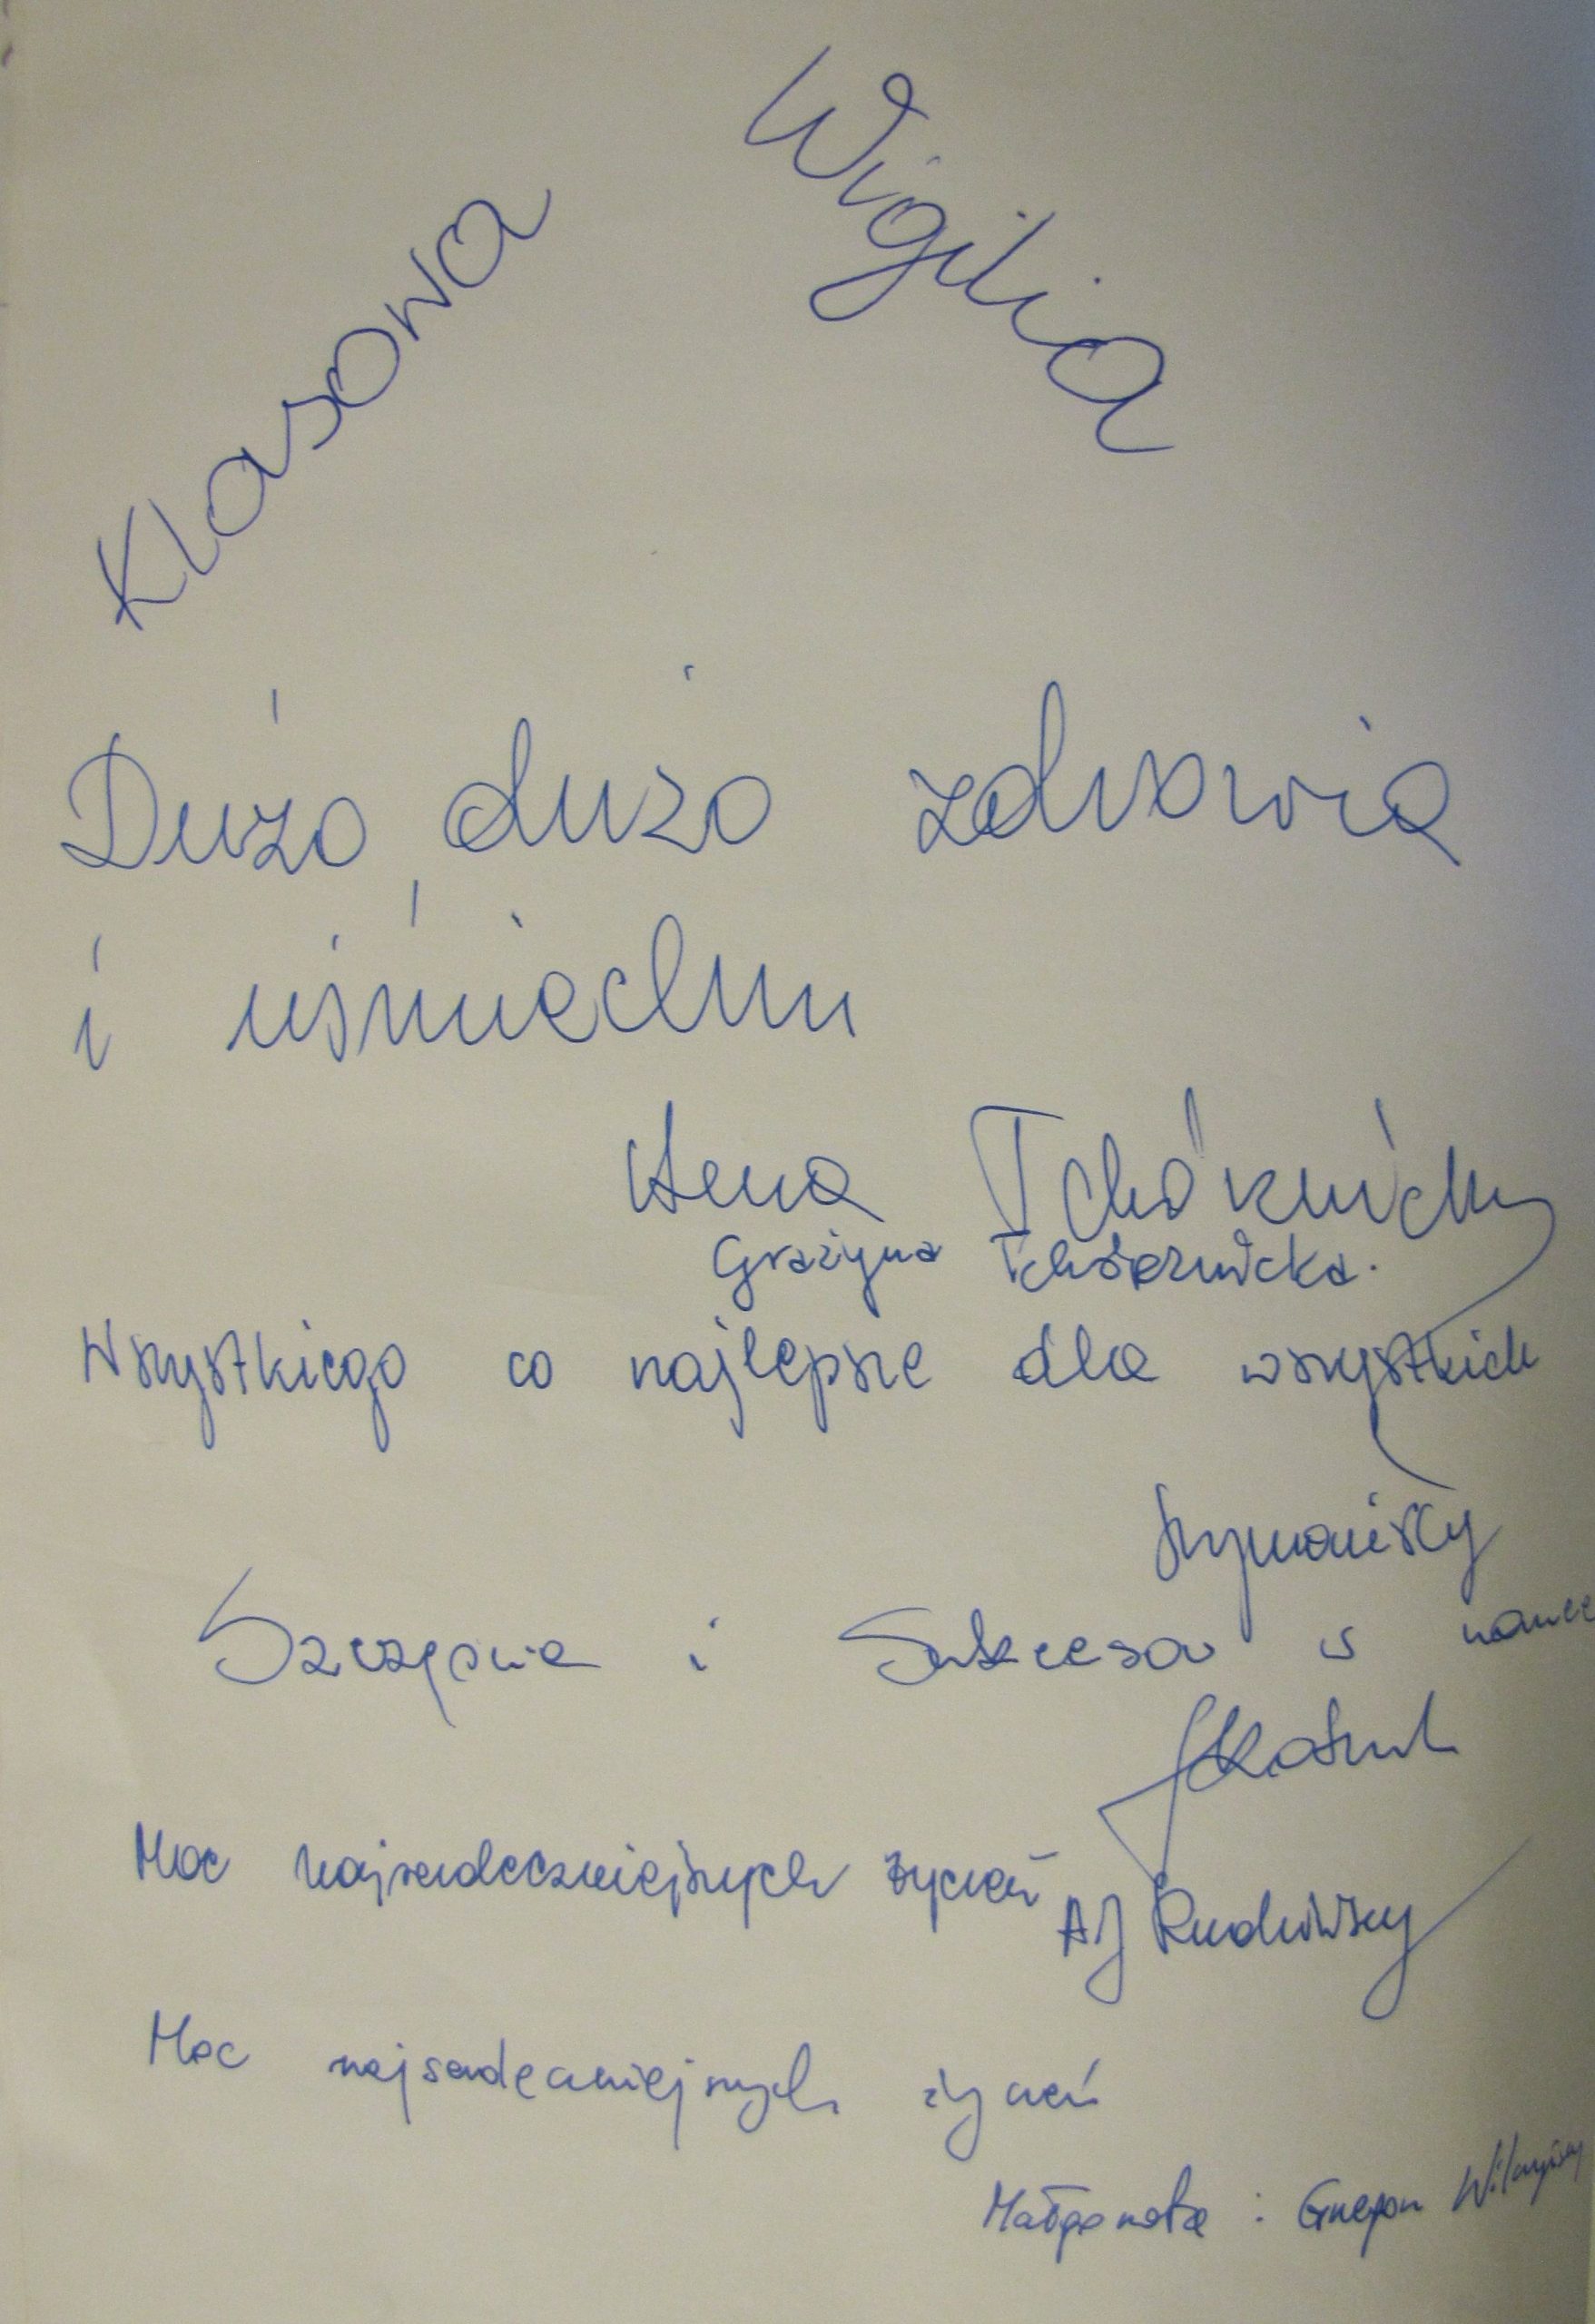 Klasowa Wigilia
Dużo, dużo zdrowia
i uśmiechu
Grażyna
Wszystkiego co najlepsze dla wszystkich
Szymańscy
Szczęścia i Sukcesów w nauce
Moc najserdeczniejszych życzeń
AJ Rudkowscy
Moc najserdeczniejszych życzeń
Małgorzata i Grzegorz